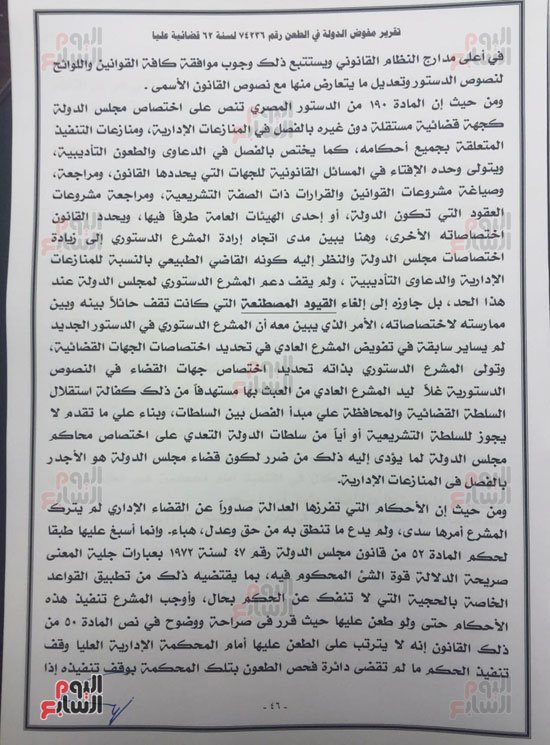 تقرير مفوض الدولة في الطعن رقم ٧٤٢٣٦ لسنة ٦٢ قضائية عليا
في أعلى مدارج النظام القانوني ويستتبع ذلك وجوب موافقة كافة القوانين واللوائح
لنصوص الدستور وتعديل ما يتعارض منها مع نصوص القانون الأسمى .
ومن حيث إن المادة ١٩٠ من الدستور المصري تنص على اختصاص مجلس الدولة
كجهة قضائية مستقلة دون غيره بالفصل في المنازعات الإدارية، ومنازعات التنفيذ
المتعلقة بجميع أحكامه، كما يختص بالفصل في الدعاوى والطعون التأديبية،
ويتولى وحده الإفتاء في المسائل القانونية للجهات التي يحددها القانون، ومراجعة،
وصياغة مشروعات القوانين والقرارات ذات الصفة التشريعية، ومراجعة مشروعات
العقود التي تكون الدولة، أو إحدى الهيئات العامة طرفاً فيها، ويحدد القانون
اختصاصاته الأخرى، وهنا يبين مدى اتجاه إرادة المشرع الدستوري إلى زيادة
اختصاصات مجلس الدولة والنظر إليه كونه القاضي الطبيعي بالنسبة للمنازعات
الإدارية والدعاوى التأديبية ، ولم يقف دعم المشرع الدستوري لمجلس الدولة عند
هذا الحد، بل جاوزه إلى إلغاء القيود المصطنعة التي كانت تقف حائلاً بينه وبين
ممارسته لاختصاصاته، الأمر الذي يبين معه أن المشرع الدستوري في الدستور الجديد
لم يساير سابقة في تفويض المشرع العادي في تحديد اختصاصات الجهات القضائية،
وتولى المشرع الدستوري بذاته تحديد اختصاص جهات القضاء في النصوص
الدستورية غلاً ليد المشرع العادي من العبث بها مستهدفاً من ذلك كفالة استقلال
السلطة القضائية والمحافظة علي مبدأ الفصل بين السلطات، وبناء علي ما تقدم لا
يجوز للسلطة التشريعية أو أياً من سلطات الدولة التعدي على اختصاص محاكم
مجلس الدولة لما يؤدى إليه ذلك من ضرر لكون قضاء مجلس الدولة هو الأجدر
بالفصل فى المنازعات الإدارية.
ومن حيث إن الأحكام التي تفرزها العدالة صدوراً عن القضاء الإداري لم يترك
المشرع أمرها سدى، ولم يدع ما تنطق به من حق وعدل، هباء. وانما أسبغ عليها طبقا
لحكم المادة ٥٢ من قانون مجلس الدولة رقم ٤٧ لسنة ١٩٧٢ بعبارات جلية المعنى
صريحة الدلالة قوة الشئ المحكوم فيه، بما يقتضيه ذلك من تطبيق القواعد
الخاصة بالحجية التي لا تنفك عن الحكم بحال، وأوجب المشرع تنفيذ هذه
الأحكام حتى ولو طعن عليها حيث قرر فى صراحة ووضوح في نص المادة ٥٠ من
ذلك القانون إنه لا يترتب على الطعن عليها أمام المحكمة الإدارية العليا وقف
تنفيذ الحكم ما لم تقضى دائرة فحص الطعون بتلك المحكمة بوقف تنفيذه إذا
- ٤٦ -
اليوم السابع